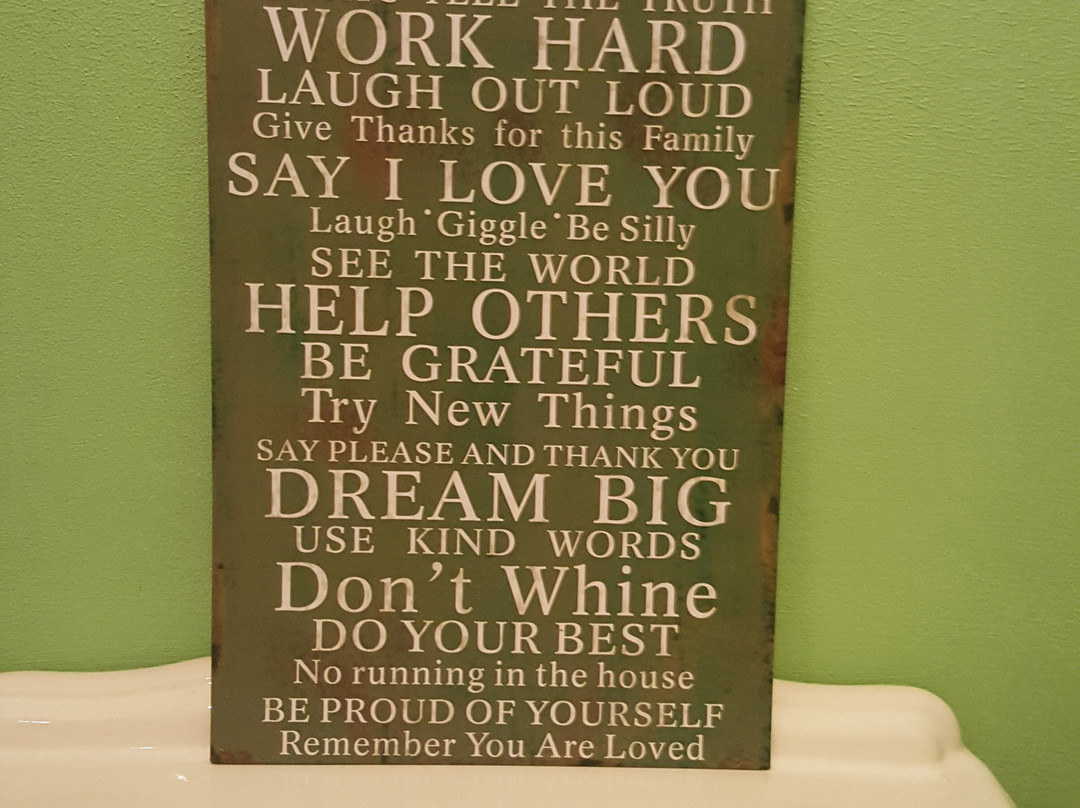 TELL THE TRUTH
WORK HARD
LAUGH OUT LOUD
Give Thanks for this Family
SAY I LOVE YOU
Laugh · Giggle · Be Silly
SEE THE WORLD
HELP OTHERS
BE GRATEFUL
Try New Things
SAY PLEASE AND THANK YOU
DREAM BIG
USE KIND WORDS
Don't Whine
DO YOUR BEST
No running in the house
BE PROUD OF YOURSELF
Remember You Are Loved